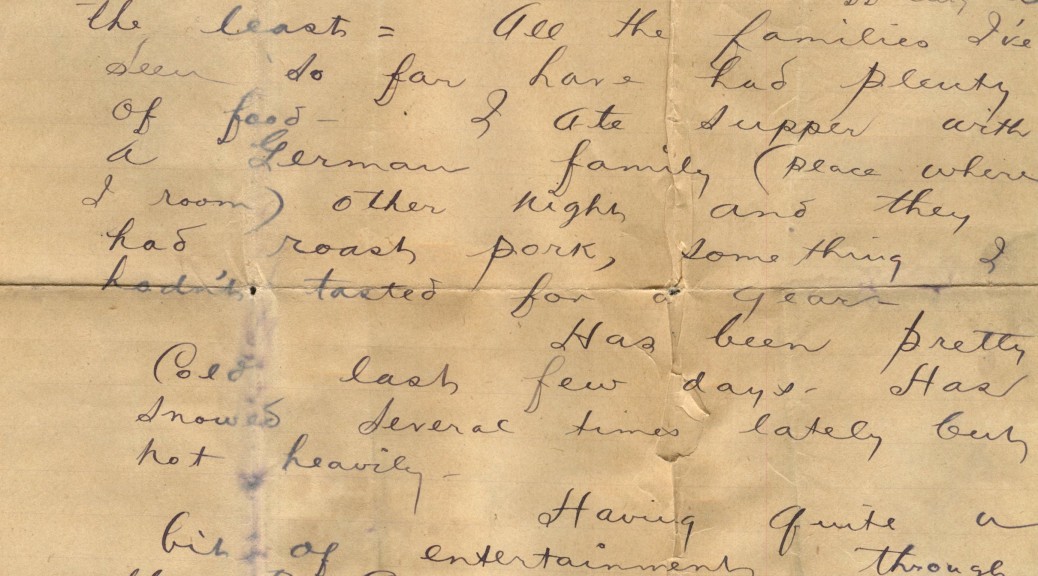 the least = All the families I've
seen so far have had plenty
of food - I ate supper with
a German family (place where
I room) other night and they
had roast pork, something I
hadn't tasted for a year -
Has been pretty
Cold last few days - Has
snowed several times lately but
not heavily -
Having quite a
bit of entertainment through